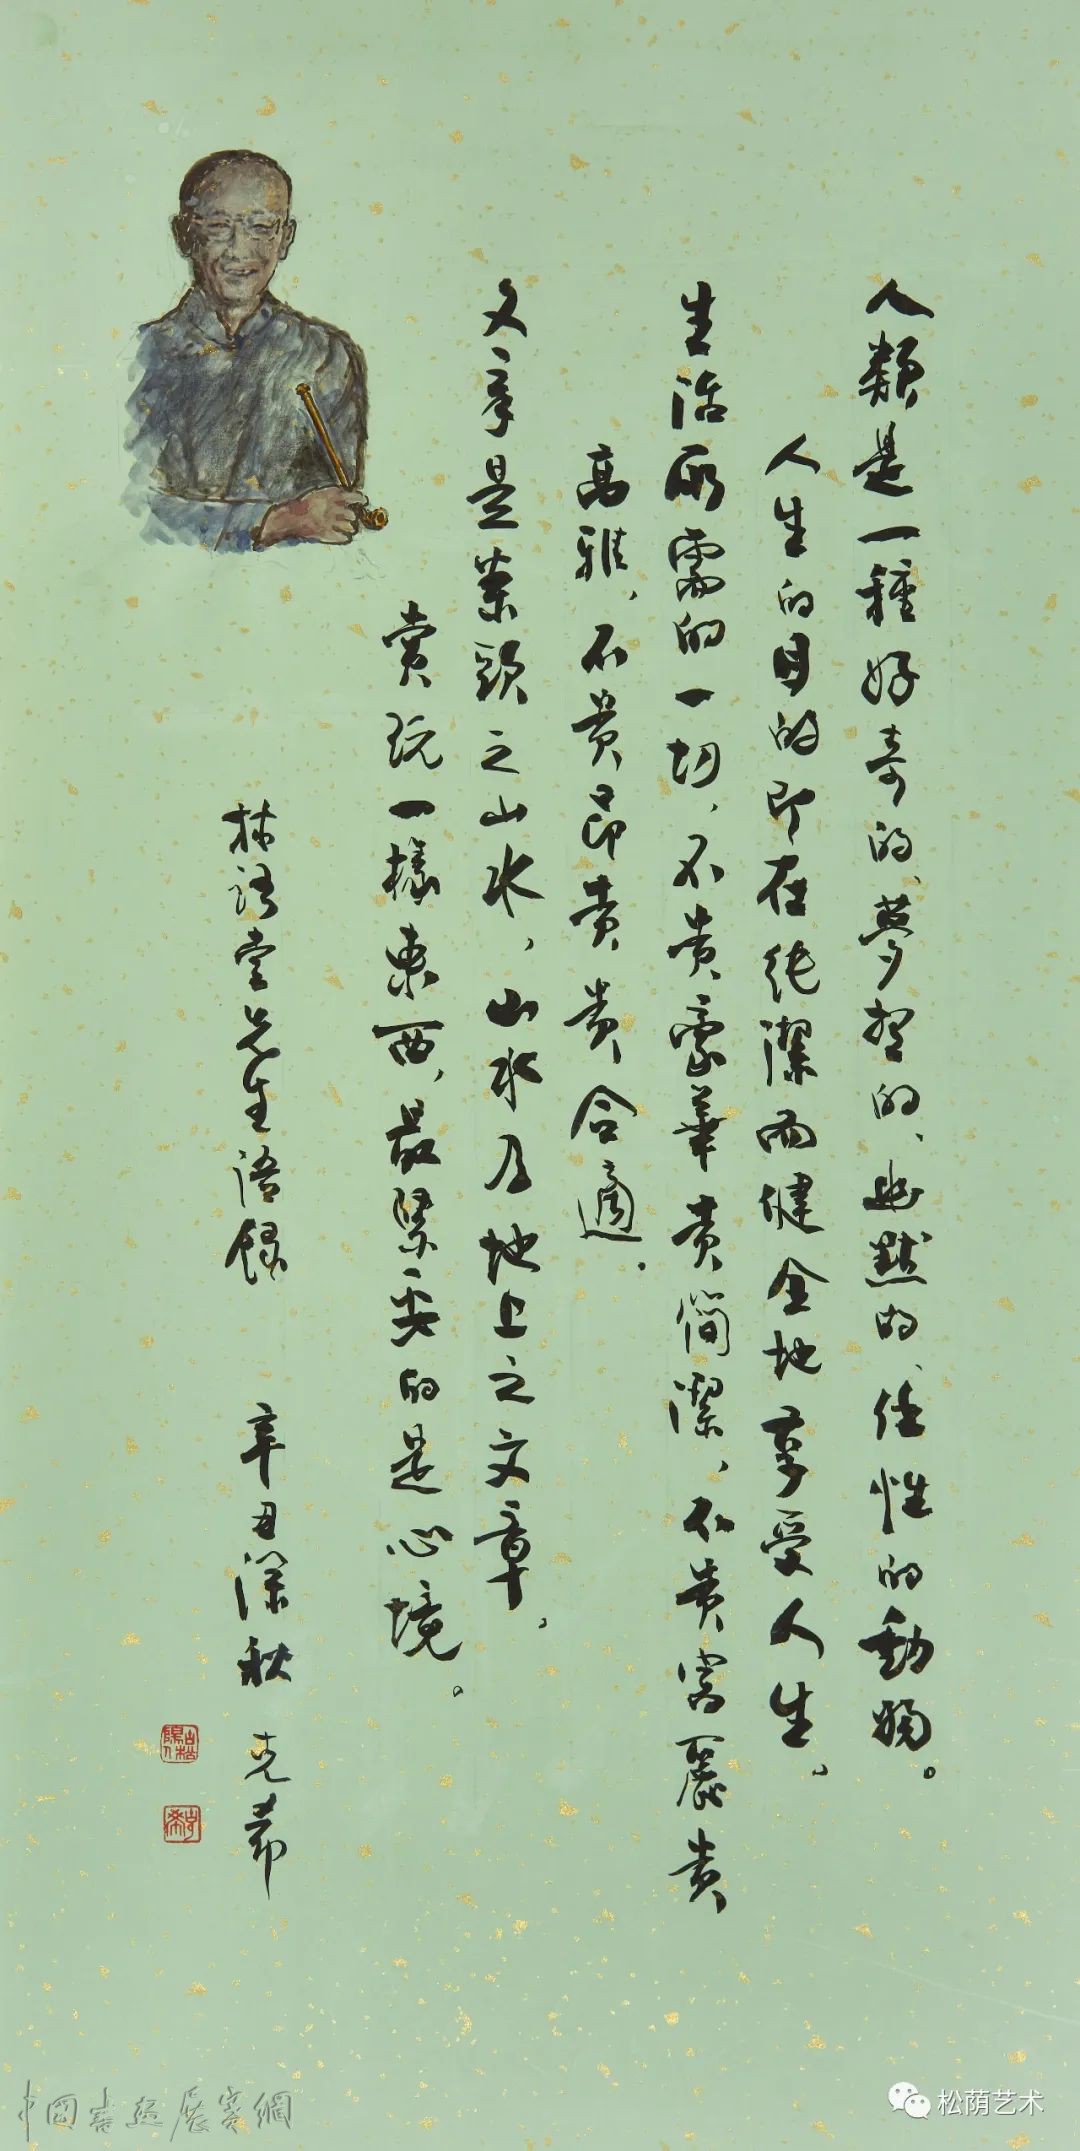 人類是一種好奇的、夢想的、幽默的、任性的動物。
人生的目的即在純潔而健全地享受人生。
生活所需的一切，不貴豪華貴簡潔，不貴富麗貴
高雅，不貴昂貴貴合適。
文章是案頭之山水，山水乃地上之文章，
賞玩一樣東西，最緊要的是心境。
林語堂先生語錄 辛丑深秋 克希
中國書畫展賽網
松荫艺术